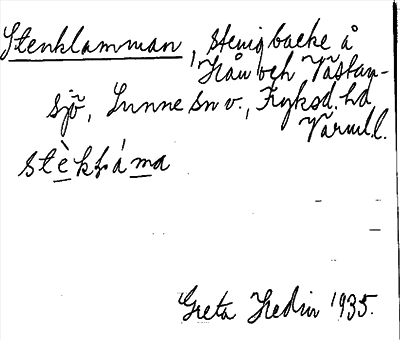 Stenklamman, stenig backe å
Hån och Västan-
sjö, Sunne sn v., Fryksd. hd
Värml.l.
stèkḷáma
Greta Hedin 1935.